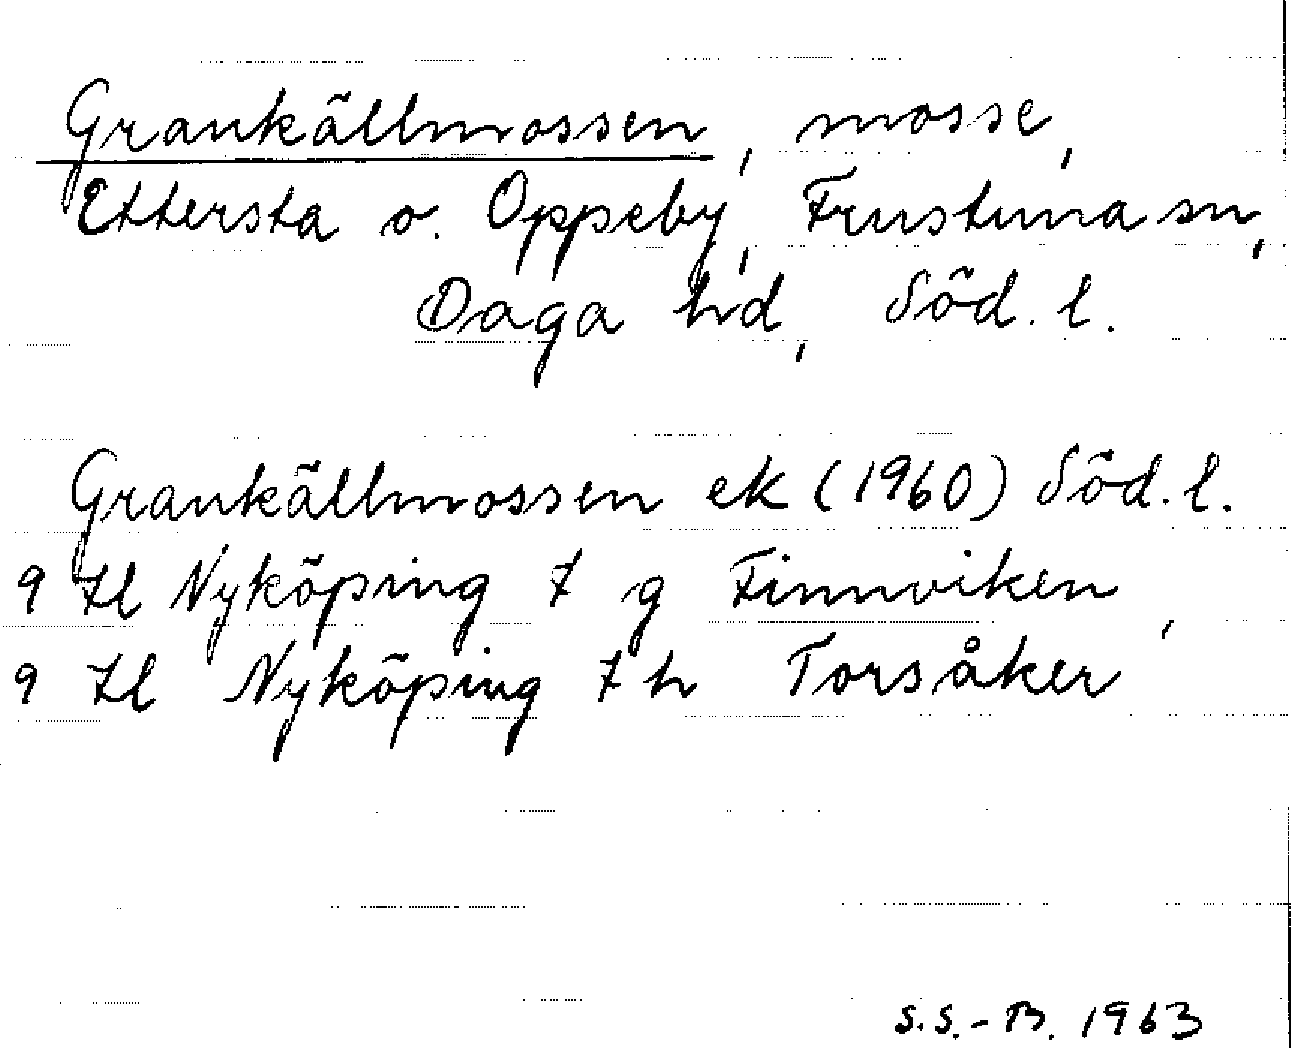 Grankällmossen, mosse,
Ettersta o. Oppeby, Frustuna sn,
Daga hd, Söd. l.
Grankällmossen ek (1960) Söd. l.
9 Il Nyköping 7 g Finnviken,
9 Il Nyköping 7 h Torsåker
S.S.-B. 1963